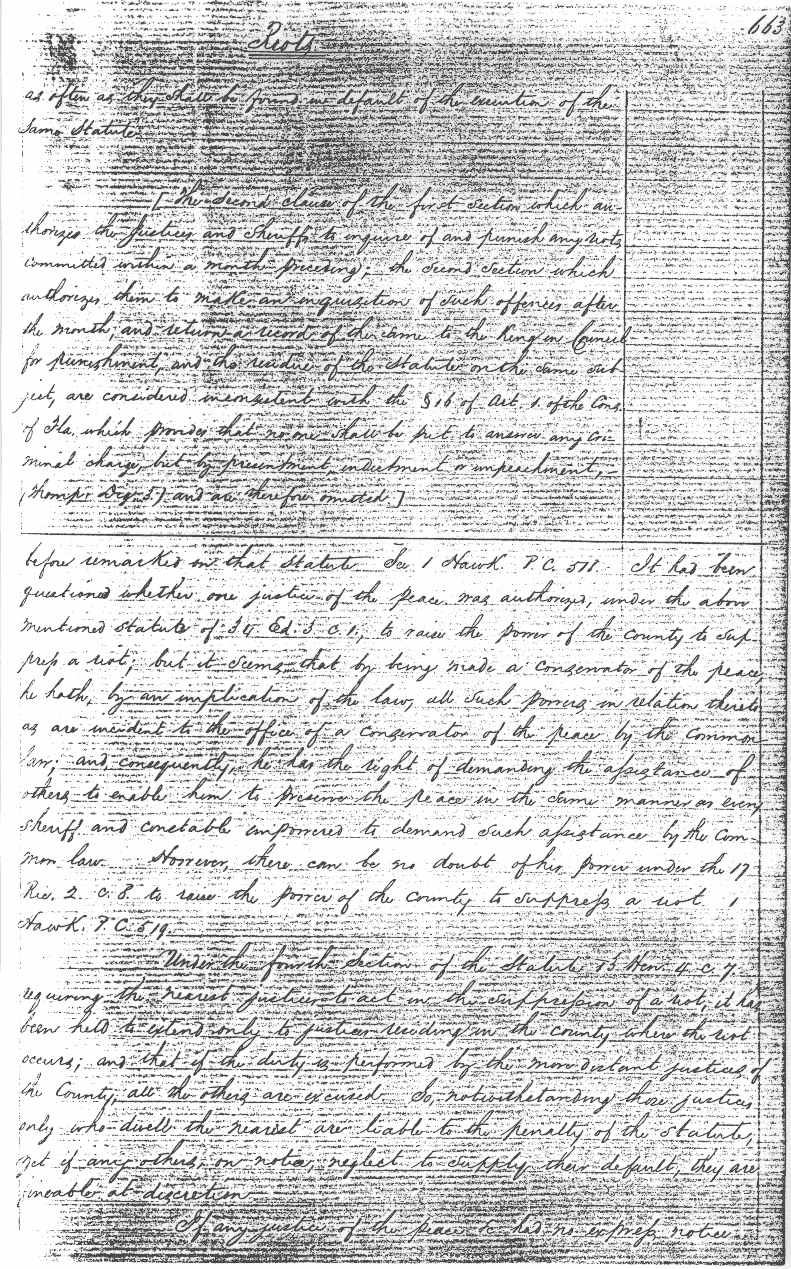 663
Riots.
as often as they shall be found in default of the execution of the
same Statute.
[The second clause of the first section which au-
thorizes the Justices and Sheriffs to inquire of and punish any riots
committed within a month preceding; the second section which
authorizes them to make an inquisition of such offences after
the month, and return a record of the same to the King in Council
for punishment, and the residue of the statute on the same sub
ject, are considered inconsistent with the § 16 of Art. 1. of the Cons.
of Fla. which provides that no one shall be put to answer any cri-
minal charge, but by presentment, indictment or impeachment,
(Thomp: Dig. 5.) and are therefore omitted.]
before remarked on that statute See 1 Hawk. P.C. 518. It had been
questioned whether one justice of the peace was authorized, under the above
mentioned statute of 34 Ed. 3 c. 1., to raise the power of the county to sup-
press a riot; but it seems that by being made a conservator of the peace,
he hath, by an implication of the law, all such powers in relation thereto
as are incident to the office of a conservator of the peace by the common
law; and consequently, he has the right of demanding the assistance of
others to enable him to preserve the peace in the same manner as every
sheriff and constable empowered to demand such assistance by the com-
mon law. However, there can be no doubt of his power under the 17
Ric. 2. c. 8. to raise the power of the county to suppress a riot. 1
Hawk. P.C. 519.
Under the fourth section of the statute 13 Hen. 4 c. 7.
requiring the nearest justices to act in the suppression of a riot, it has
been held to extend only to justices residing in the county where the riot
occurs; and that if the duty is performed by the more distant justices of
the County, all the others are excused. So, notwithstanding those justices
only who dwell the nearest are liable to the penalty of the statute,
yet if any others, on notice, neglect to supply their default, they are
fineable at discretion
If any justice of the peace &c had no express notice